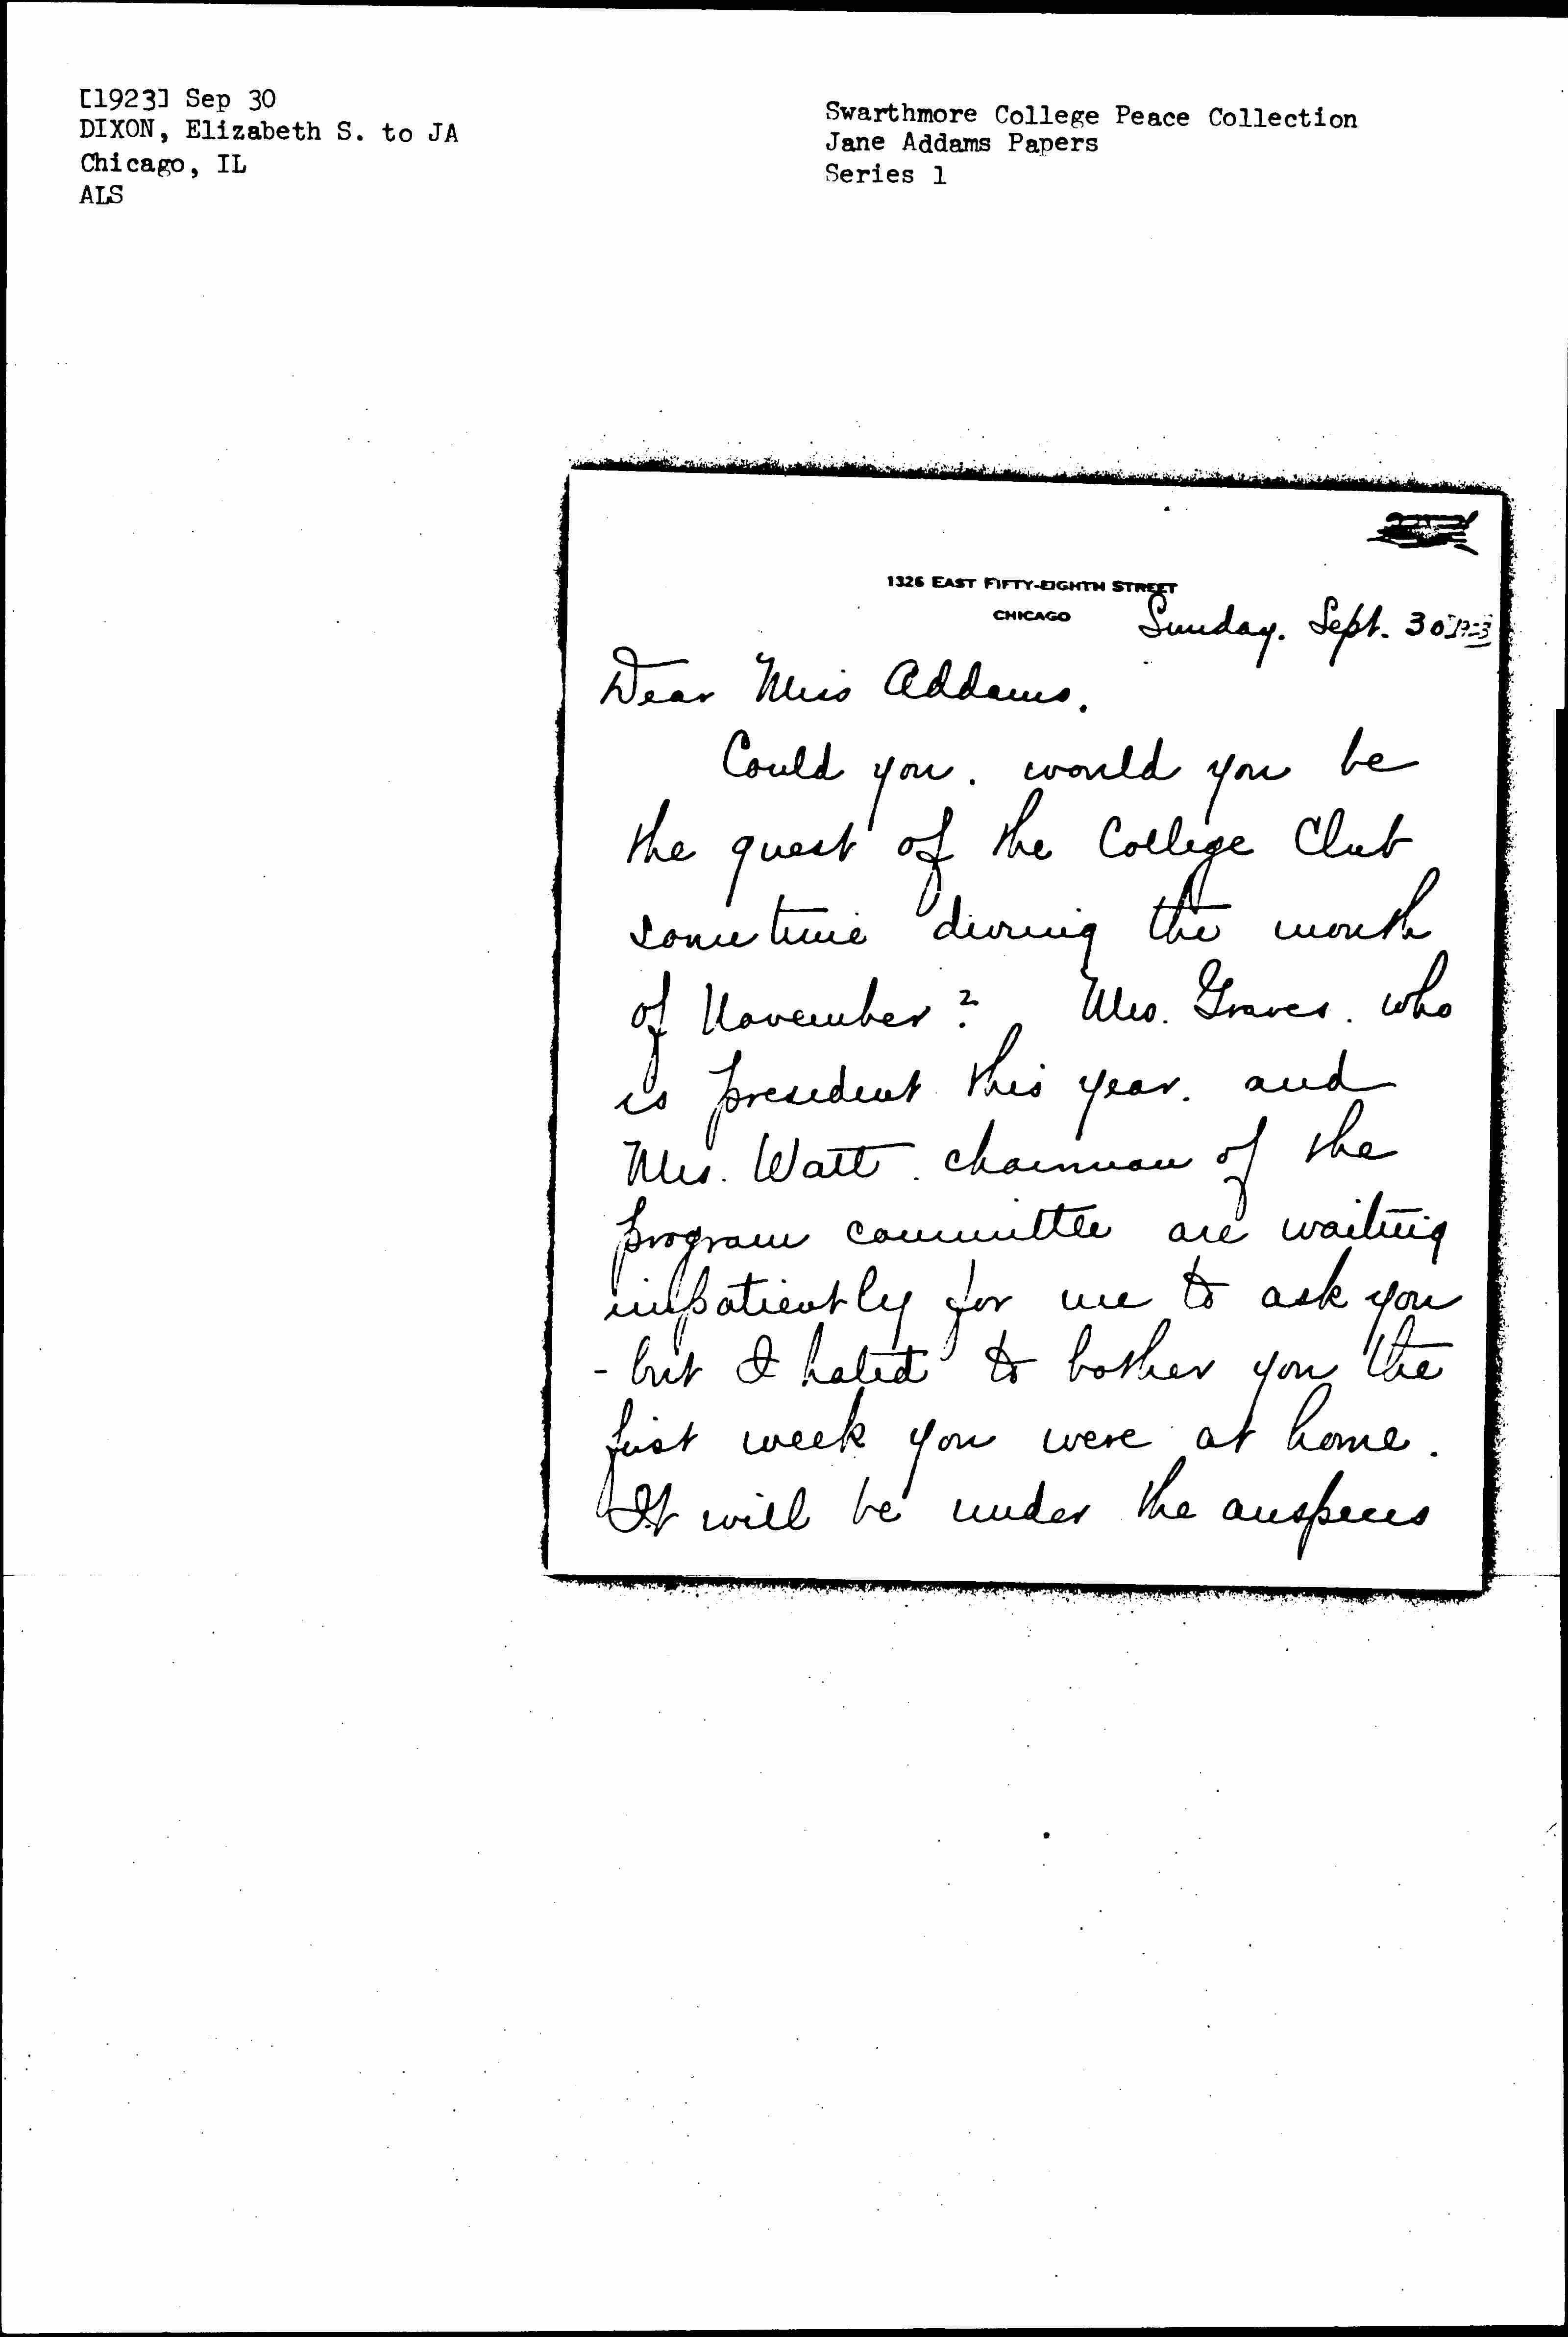 [1923] Sep 30
DIXON, Elizabeth S. to JA
Chicago, IL
ALS
Swarthmore College Peace Collection
Jane Addams Papers
Series 1
1326 EAST FIFTY-EIGHTH STREET
CHICAGO
Sunday. Sept. 30 [1923]
Dear Miss Addams.
Could you. would you be
the guest of the College Club
sometime during the month
of November? Mrs. Graves. who
is president this year. and
Mrs. Watt. chairman of the
program committee are waiting
impatiently for me to ask you
- but I hated to bother you the
first week you were at home.
It will be under the auspices